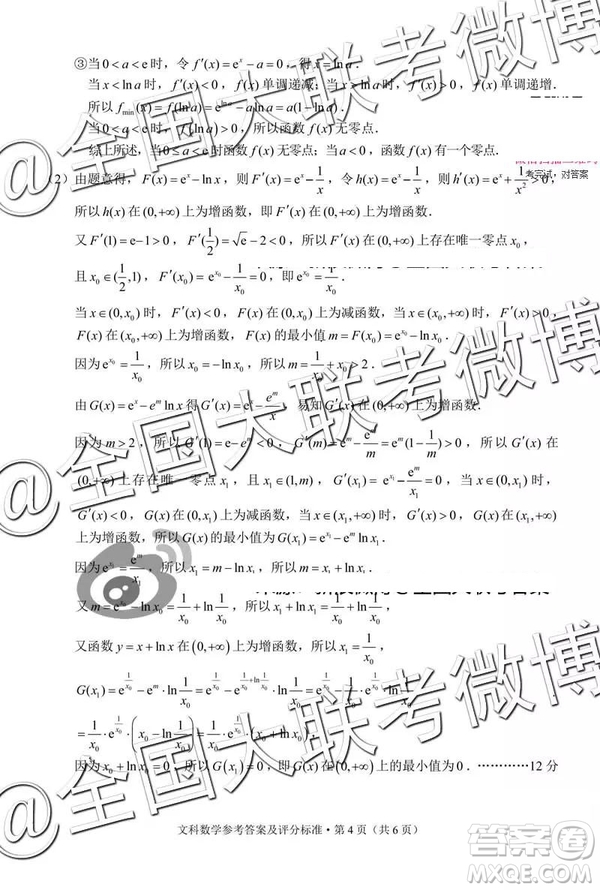 ③当 0 < a < e 时，令 f′(x) = eˣ − a = 0，得 x = ln a．
当 x < ln a 时，f′(x) < 0，f(x) 单调递减；当 x > ln a 时，f′(x) > 0，f(x) 单调递增．
所以 f_min(x) = f(ln a) = e^{ln a} − a ln a = a(1 − ln a)．
当 0 < a < e 时，f(ln a) > 0，所以函数 f(x) 无零点．
综上所述，当 0 ≤ a < e 时函数 f(x) 无零点；当 a < 0，函数 f(x) 有一个零点．
考完试，对答案
（2）由题意得，F(x) = eˣ − ln x，则 F′(x) = eˣ − 1/x，令 h(x) = eˣ − 1/x，则 h′(x) = eˣ + 1/x² > 0，
所以 h(x) 在 (0,+∞) 上为增函数，即 F′(x) 在 (0,+∞) 上为增函数．
又 F′(1) = e − 1 > 0，F′(1/2) = √e − 2 < 0，所以 F′(x) 在 (0,+∞) 上存在唯一零点 x₀，
且 x₀ ∈ (1/2,1)，F′(x₀) = e^{x₀} − 1/x₀ = 0，即 e^{x₀} = 1/x₀．
当 x ∈ (0,x₀) 时，F′(x) < 0，F(x) 在 (0,x₀) 上为减函数，当 x ∈ (x₀,+∞) 时，F′(x) > 0，
F(x) 在 (x₀,+∞) 上为增函数，F(x) 的最小值 m = F(x₀) = e^{x₀} − ln x₀．
因为 e^{x₀} = 1/x₀，所以 x₀ = −ln x₀，所以 m = 1/x₀ + x₀ > 2．
由 G(x) = eˣ − eᵐ ln x 得 G′(x) = eˣ − eᵐ/x，易知 G′(x) 在 (0,+∞) 上为增函数．
因为 m > 2，所以 G′(1) = e − eᵐ < 0，G′(m) = eᵐ − eᵐ/m = eᵐ(1 − 1/m) > 0，所以 G′(x) 在
(0,+∞) 上存在唯一零点 x₁，且 x₁ ∈ (1,m)，G′(x₁) = e^{x₁} − eᵐ/x₁ = 0，当 x ∈ (0,x₁) 时，
G′(x) < 0，G(x) 在 (0,x₁) 上为减函数，当 x ∈ (x₁,+∞) 时，G′(x) > 0，G(x) 在 (x₁,+∞)
上为增函数，所以 G(x) 的最小值为 G(x₁) = e^{x₁} − eᵐ ln x₁．
因为 e^{x₁} = eᵐ/x₁，所以 x₁ = m − ln x₁，所以 m = x₁ + ln x₁．
又 m = e^{x₀} − ln x₀ = 1/x₀ + ln 1/x₀，所以 x₁ + ln x₁ = 1/x₀ + ln 1/x₀，
又函数 y = x + ln x 在 (0,+∞) 上为增函数，所以 x₁ = 1/x₀，
G(x₁) = e^{1/x₀} − eᵐ · ln 1/x₀ = e^{1/x₀} − e^{1/x₀ + ln 1/x₀} · ln 1/x₀ = e^{1/x₀} − 1/x₀ · e^{1/x₀} · ln 1/x₀
= 1/x₀ · e^{1/x₀} · (x₀ − ln 1/x₀) = 1/x₀ · e^{1/x₀} · (x₀ + ln x₀)，
因为 x₀ + ln x₀ = 0，所以 G(x₁) = 0，即 G(x) 在 (0,+∞) 上的最小值为 0．…………12 分
文科数学参考答案及评分标准・第 4 页（共 6 页）
@全国大联考微博
@全国大联考微博
@全国大联考微博
答案圈
MXQE.COM